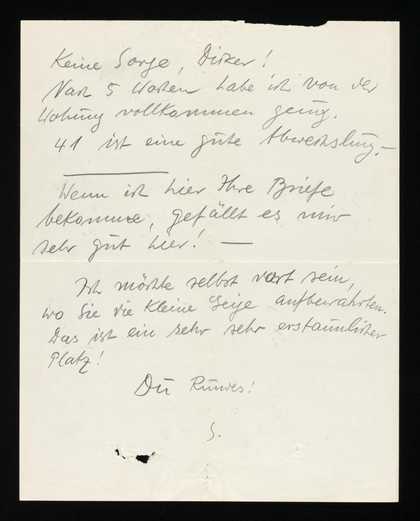 Keine Sorge, Dicker!
Nach 5 Wochen habe ich von der
Wohnung vollkommen genug.
41 ist eine gute Abwechslung. —
Wenn ich hier Ihre Briefe
bekomme, gefällt es mir
sehr gut hier! —
Ich möchte selbst dort sein,
wo Sie die kleine Geige aufbewahrten.
Das ist ein sehr sehr erstaunlicher
Platz!
Du
S.